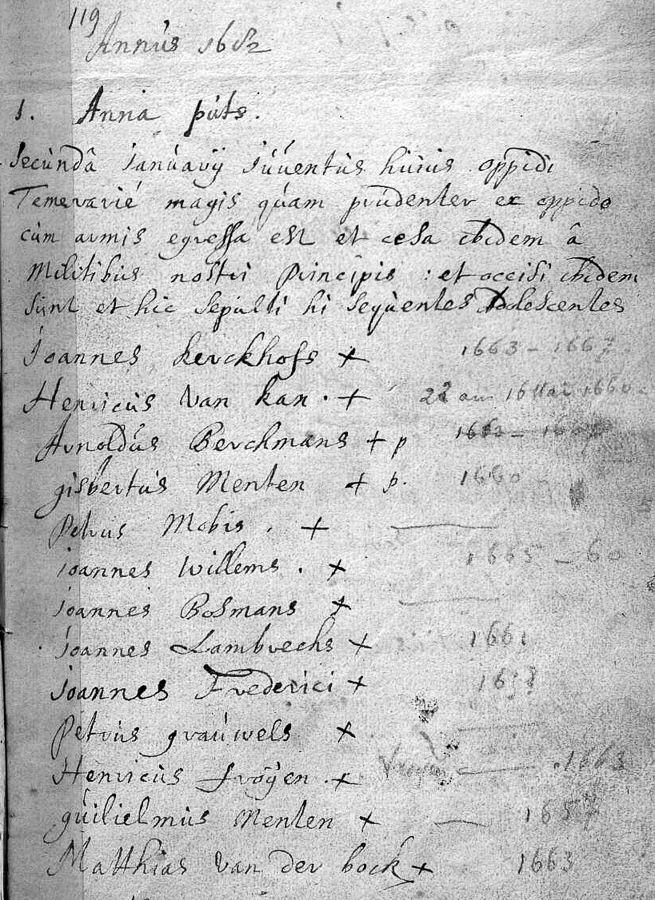 119
Annus 1682
1. Anna puts.
Secundâ Januarij Juventus huius oppidi
Temerarié magis quam prudenter ex oppido
cum armis egressa est et cesa ibidem â
Militibus nostri Principis : et occisi ibidem
sunt et hic sepulti hi sequentes Adolescentes
Joannes kerckhofs + 1663 - 1667
Henricus Van kan. + 1660
Arnoldus Berchmans + p
gisbertus Menten + p. 1660
Petrus Mobis . +
joannes Willems . + 1665 - 60
joannes Bosmans +
joannes Lambrechs + 1661
joannes Frederici +
Petrus grauwels +
Henricus froÿen . + . 1663
guilielmus Menten + 1657
Matthias Van der bock + 1663